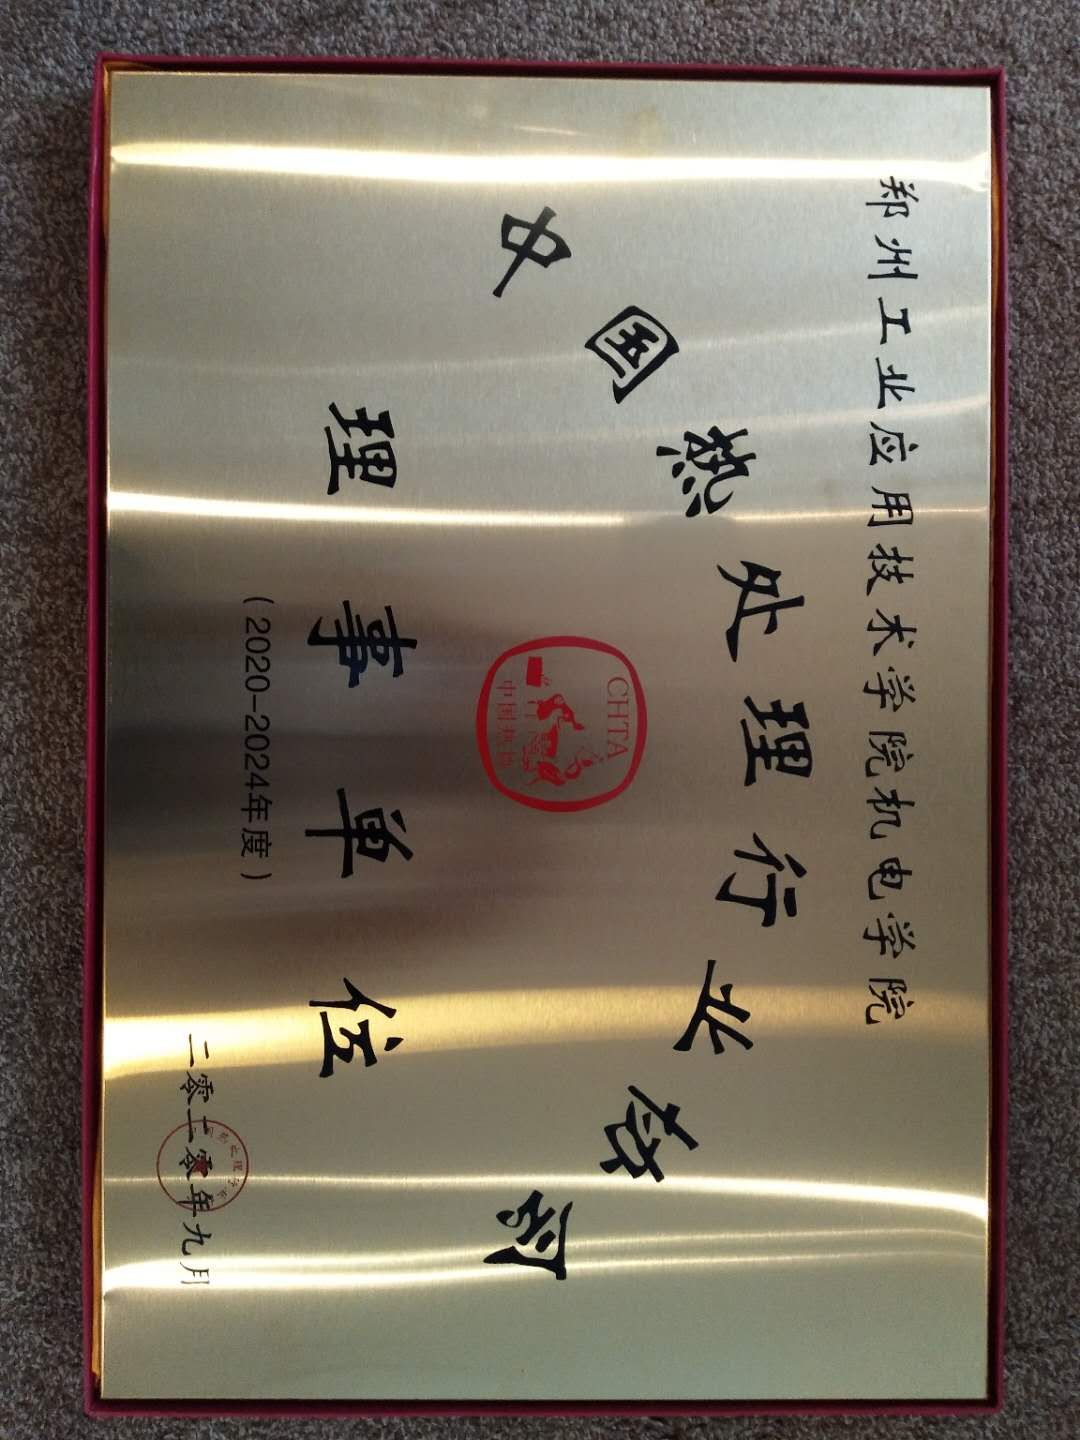 郑州工业应用技术学院机电学院
中国热处理行业协会
CHTA
中国热协
理事单位
(2020-2024年度)
二零二零年九月